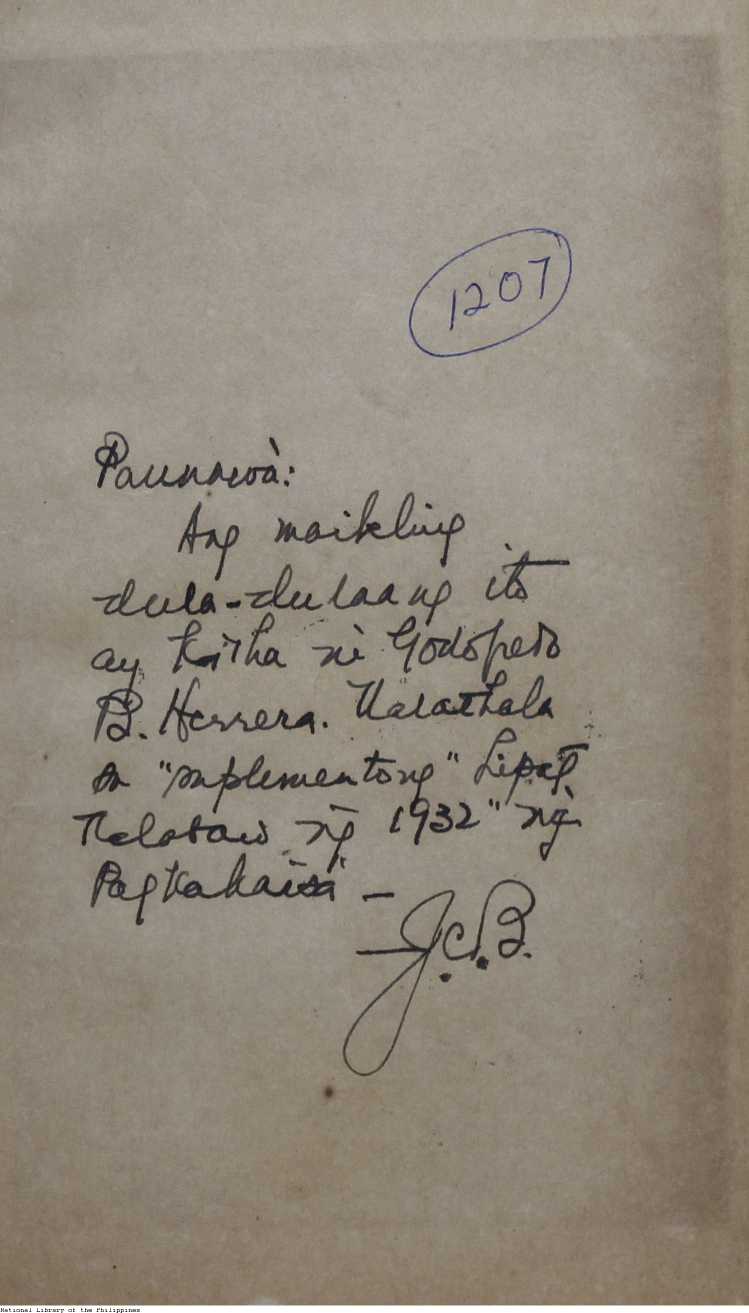 1207
Paunawà:
Ang maikling
dula-dulaang ito
ay katha ni Godofredo
B. Herrera. Nalathala
sa "suplementong"
ng 1932" ng
Pagkakaisa" —
J.C.B.
National Library of the Philippines